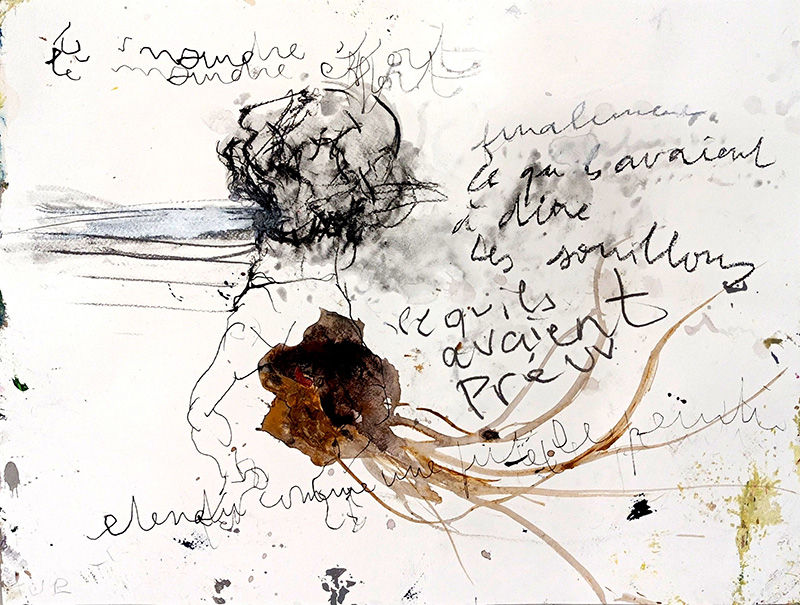 le moindre effort
le moindre effort
finalement
ce qu'ils avaient
à dire
les souillons
ce qu'ils
avaient
prévu
etendu comme une